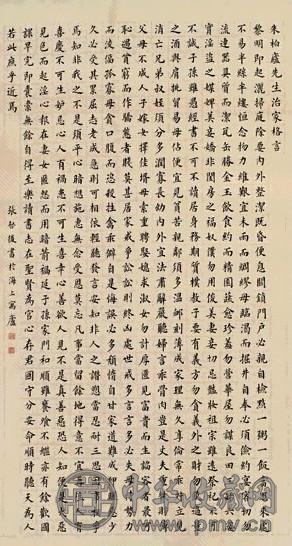 朱柏廬先生治家格言
黎明即起灑掃庭除要內外整潔既昏便息關鎖門戶必親自檢點一粥一飯當思來處
不易半絲半縷恆念物力維艱宜未雨而綢繆毋臨渴而掘井自奉必須儉約宴客切勿
流連器具質而潔瓦缶勝金玉飲食約而精園蔬愈珍饈勿營華屋勿謀良田三姑六婆
實淫盜之媒婢美妾嬌非閨房之福奴僕勿用俊美妻妾切忌豔妝祖宗雖遠祭祀不可
不誠子孫雖愚經書不可不讀居身務期質樸教子要有義方勿貪意外之財勿飲過量
之酒與肩挑貿易毋佔便宜見貧苦親鄰須多溫卹刻薄成家理無久享倫常乖舛立見
消亡兄弟叔姪須分多潤寡長幼內外宜法肅辭嚴聽婦言乖骨肉豈是丈夫重資財薄
父母不成人子嫁女擇佳壻毋索重聘娶媳求淑女勿計厚奩見富貴而生諂容者最可
恥遇貧窮而作驕態者賤莫甚居家戒爭訟訟則終凶處世戒多言言多必失毋恃勢力
而凌逼孤寡毋貪口腹而恣殺牲禽乖僻自是悔誤必多頹惰自甘家道難成狎昵惡少
久必受其累屈志老成急則可相依輕聽發言安知非人之譖愬當忍耐三思因事相爭
焉知非我之不是須平心暗想施惠無念受恩莫忘凡事當留餘地得意不宜再往人有
喜慶不可生妒忌心人有禍患不可生喜幸心善欲人見不是真善惡恐人知便是大惡
見色而起淫心報在妻女匿怨而用暗箭禍延子孫家門和順雖饔飧不繼亦有餘歡國
課早完即囊橐無餘自得至樂讀書志在聖賢為官心存君國守分安命順時聽天為人
若此庶乎近焉
張 復書於海上寓廬
中華收藏网
www.pmv.cn